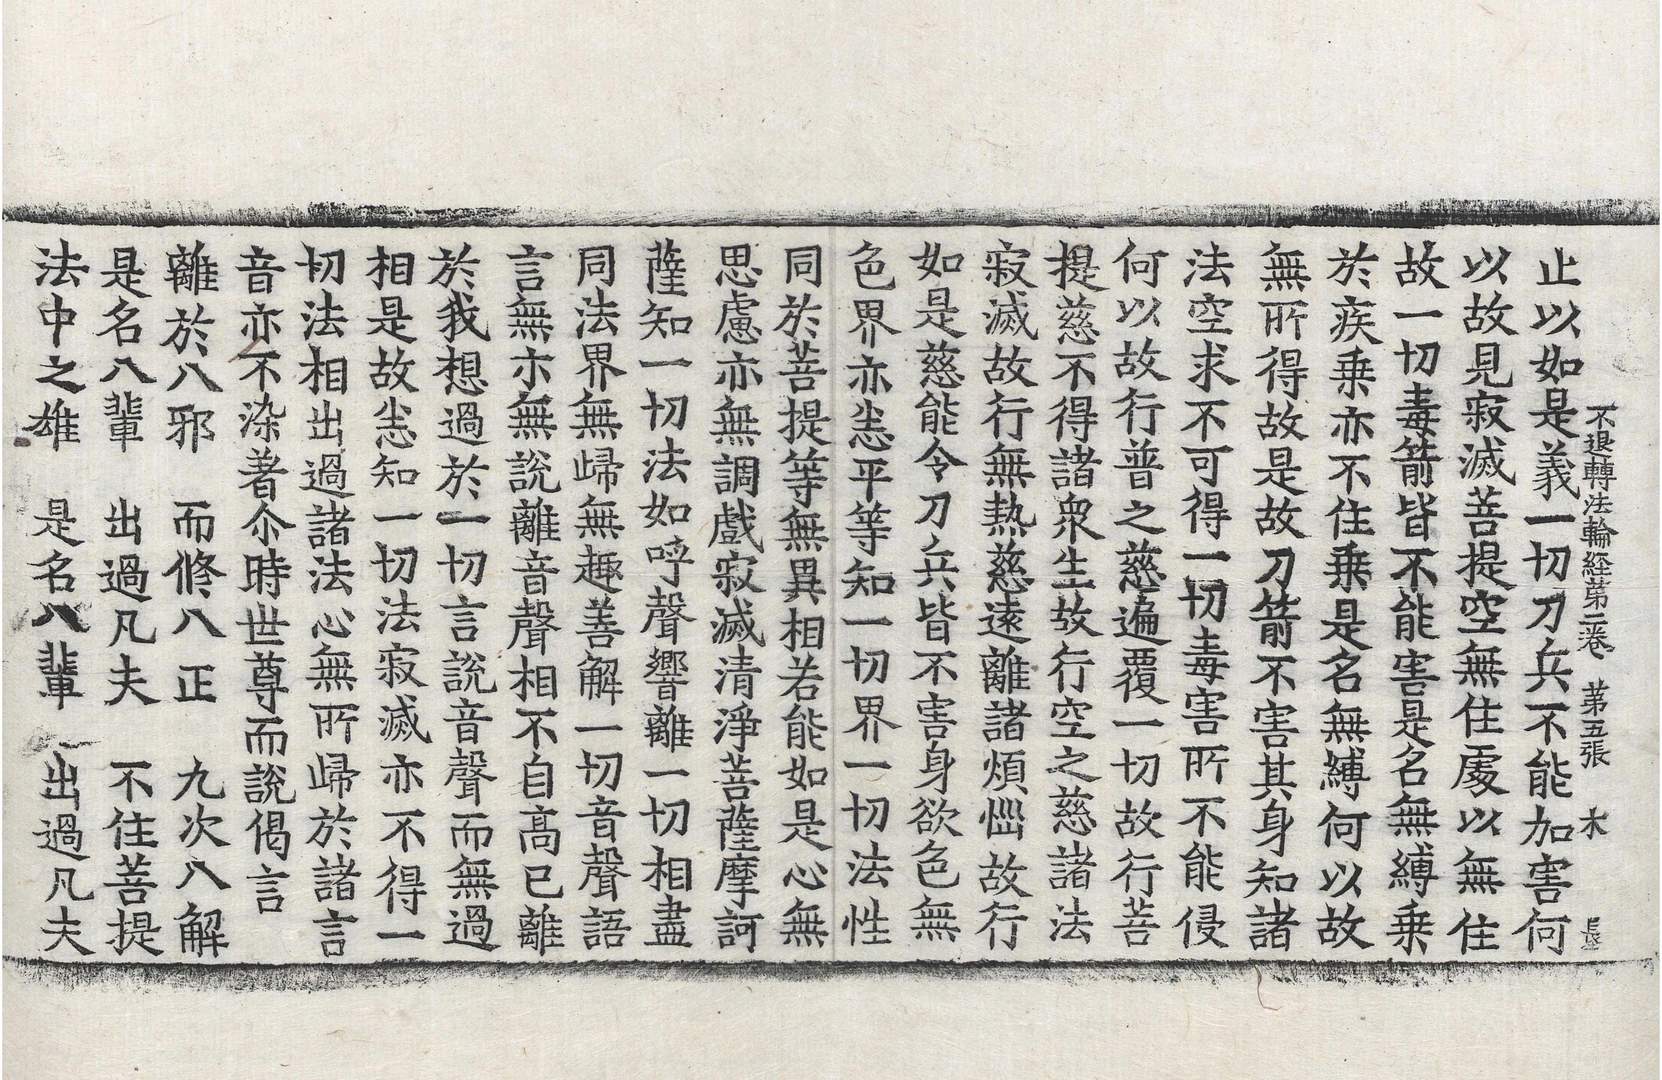 不退轉法輪経苐二卷 苐五張 木
止以如是義一切刀兵不能加害何
以故見寂滅菩提空無住處以無住
故一切毒箭皆不能害是名無縛乗
於疾乗亦不住乗是名無縛何以故
無所得故是故刀箭不害其身知諸
法空求不可得一切毒害所不能侵
何以故行普之慈遍覆一切故行菩
提慈不得諸衆生故行空之慈諸法
寂滅故行無熱慈遠離諸煩惱故行
如是慈能令刀兵皆不害身欲色無
色界亦悉平等知一切界一切法性
同於菩提等無異相若能如是心無
思慮亦無調戲寂滅清淨菩薩摩訶
薩知一切法如呼聲響離一切相盡
同法界無歸無趣善解一切音聲語
言無亦無說離音聲相不自高已離
於我想過於一切言說音聲而無過
相是故悉知一切法寂滅亦不得一
切法相出過諸法心無所歸於諸言
音亦不染著尒時世尊而說偈言
離於八邪 而修八正 九次八解
是名八輩 出過凡夫 不住菩提
法中之雄 是名八輩 出過凡夫